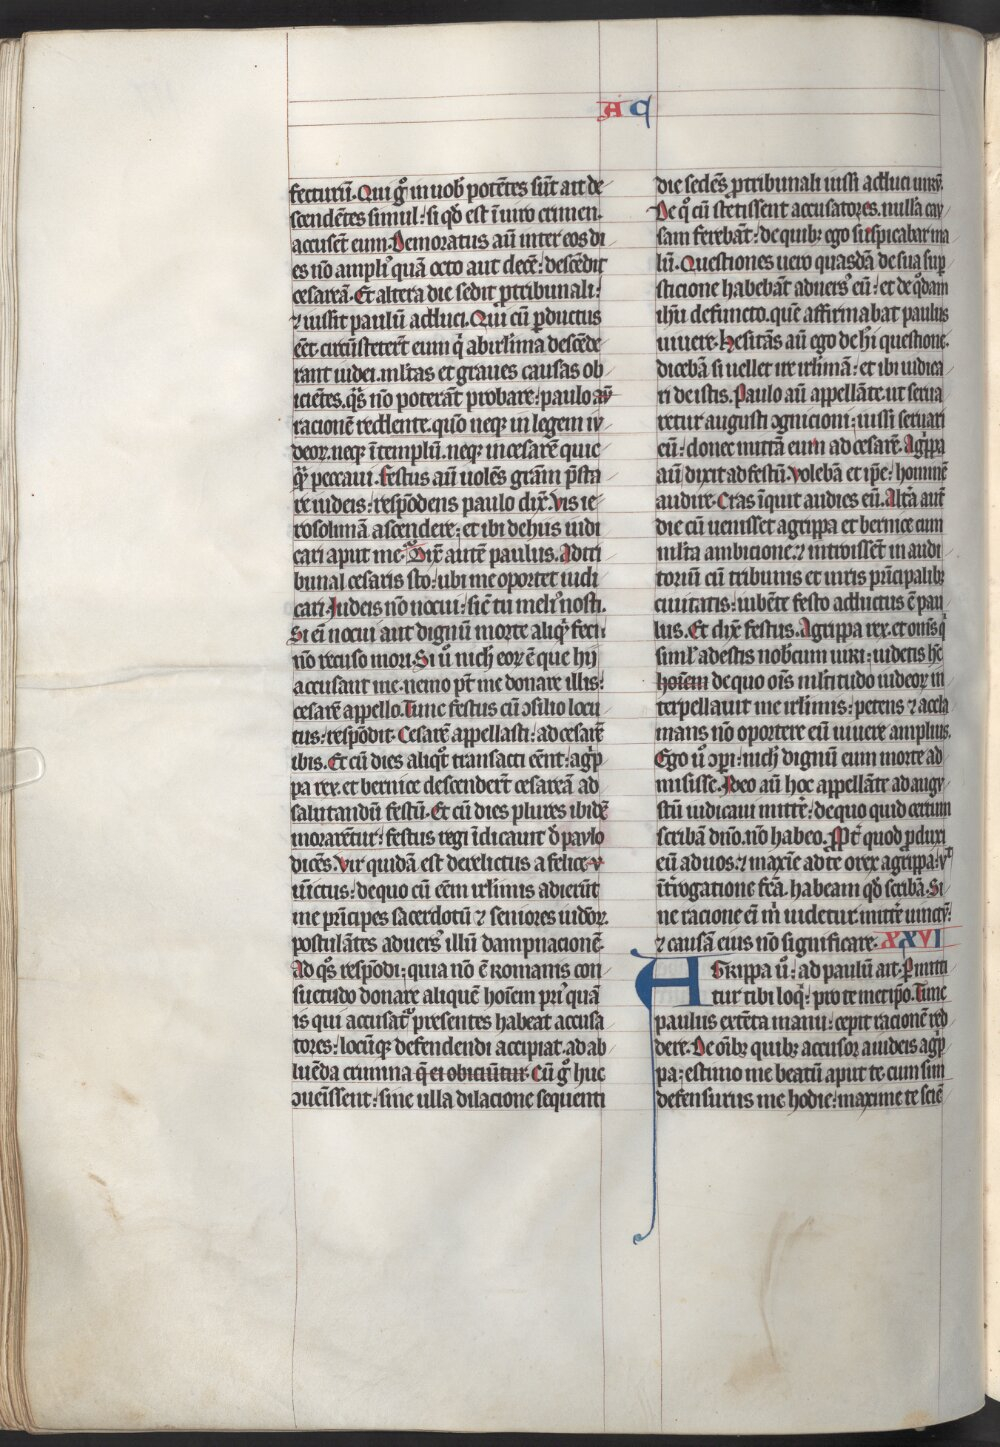 A C
fecturū. Qui gͦ in uob̄ potētes sūt ait de
scendētes simul: si qd̄ est ī uiro crimen.
accusēt eum. Demoratus aū inter eos di
es nō ampliꝰ quā octo aut decē: descēdit
cesareā. Et altera die sedit ꝓ tribunali:
⁊ iussit paulū adduci. Qui cū ꝑductus
eēt. circūsteterūt eum q̄ ab irl̄ima descēde
rant iudei. ml̄tas et graues causas ob
iciētes. qͣs nō poterāt probare: paulo aū
racionē reddente. quō neqꝫ in legem iu
deoꝝ. neqꝫ ī templū. neqꝫ in cesarē quic
qͣꝫ peccaui. Festus aū uolēs grām p̄sta
re iudeis: respōdens paulo dix̄. Vis ie
rosolimā ascendere: et ibi de hiis iudi
cari aput me. Dix̄ autē paulus. Ad tri
bunal cesaris sto: ubi me oportet iudi
cari. Judeis nō nocui: sic̄ tu meliꝰ nosti.
Si eī nocui aut dignū morte aliqͥd feci:
nō recuso mori. Si uͦ nich̄ eoꝝ ē que hij
accusant me. nemo pt̄ me donare illis:
cesarē appello. Tunc festus cū ꝯsilio locu
tus: respōdit. Cesarē appellasti: ad cesarē
ibis. Et cū dies aliqͦt transacti eēnt: agͥp
pa rex. et bernice descenderūt cesareā ad
salutandū festū. Et cū dies plures ibidē
morarētur: festus regi īdicauit d̄ paulo
dicēs. Vir quidā est derelictus a felice v
īnctus: de quo cū eēm irl̄imis adierūt
me pͥncipes sacerdotū ⁊ seniores iudoꝝ.
postulātes aduersꝰ illū dampnacionē.
Ad qͦs respōdi: quia nō ē romanis con
suetudo donare aliquē hoīem priꝰ quā
is qui accusatͬ presentes habeat accusa
tores: locūqꝫ defendendi accipiat. ad ab
luēda crimina q̄ ei obiciūtur. Cū gͦ huc
ꝯuenissent: sine ulla dilacione sequenti
die sedēs ꝓ tribunali iussi adduci uirū.
De qͦ cū stetissent accusatores. nullā cau
sam ferebāt: de quibꝫ ego suspicabar ma
lū. Questiones uero quasdā de sua sup
sticione habebāt aduersꝰ eū: et de qͦdam
ih̄u defuncto. quē affirmabat paulus
uiuere. Hesitās aū ego de hͥ questione.
dicebā si uellet ire irl̄imā: et ibi iudica
ri de istis. Paulo aū appellāte. ut serua
retur augusti ꝯgnicioni: iussi seruari
eū: donec mittā eum ad cesarē. Agͥppa
aū dixit ad festū. Volebā et ip̄e: hominē
audire. Cras īquit audies eū. Altͣa autē
die cū uenisset agrippa et bernice cum
ml̄ta ambicione. ⁊ introissēt in audi
toriū cū tribunis et uiris pͥncipalibꝫ
ciuitatis: iubēte festo adductus ē pau
lus. Et dix̄ festus. Agrippa rex. et om̄s qͥ
siml̄ adestis nobiscum uiri: uidetis hͦc
hoīem de quo om̄s ml̄titudo iudeoꝝ in
terpellauit me irl̄imis: petens ⁊ accla
mans nō oportere eū uiuere amplius.
Ego uͦ ꝯperi: nich̄ dignū eum morte ad
misisse. Ipso aū hoc appellāte ad augu
stū iudicaui mittͤe: de quo quid certum
scribā dn̄o. nō habeo. Pptͤ quod ꝓduxi
eū ad uos: ⁊ maxīe ad te o rex agrippa: vt
īt̄rogatione fc̄a. habeam qd̄ scribā. Si
ne racione eī m̄ uidetur. mittͤe uinctū:
⁊ causā eius nō significare. XXVI
Agrippa uͦ: ad paulū ait. Pmitti
tur tibi loqͥ: pro te metip̄o. Tunc
paulus extēta manu: cepit racionē red
dere. De oībꝫ quibꝫ accusor a iudeis agͥp
pa: estimo me beatū aput te. cum sim
defensurus me hodie: maxime te sciē